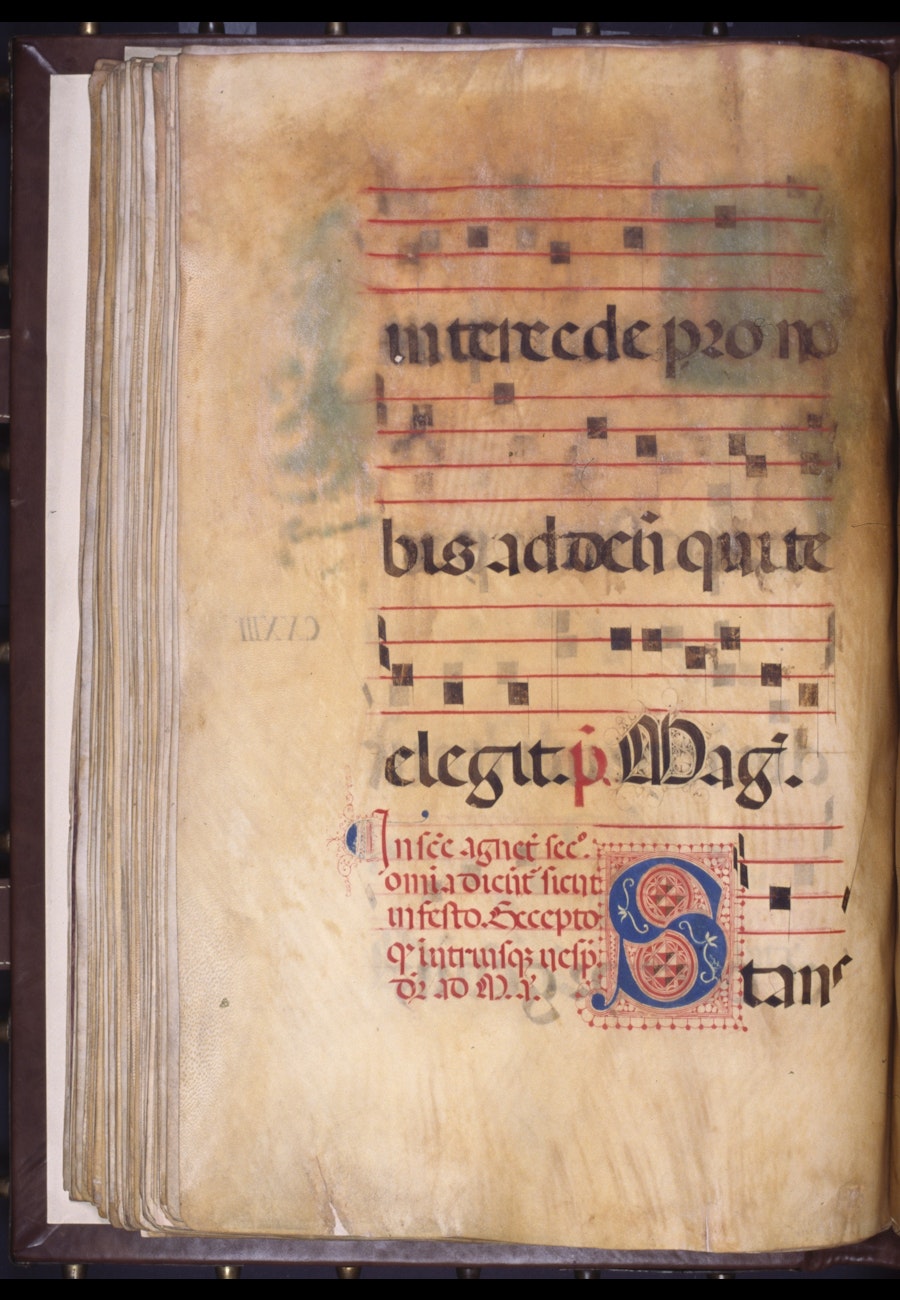 intercede pro no
bis ad dn̄m qui te
elegit. p̄. Maḡ.
In sc̄e agnet̄ sec̄o.
om̄ia dicūt̄ sicut
in festo. Excepto
q̄ in utruisq̨ uesp̄.
dr̄ ad M. A͞.
Stans
CXXIII